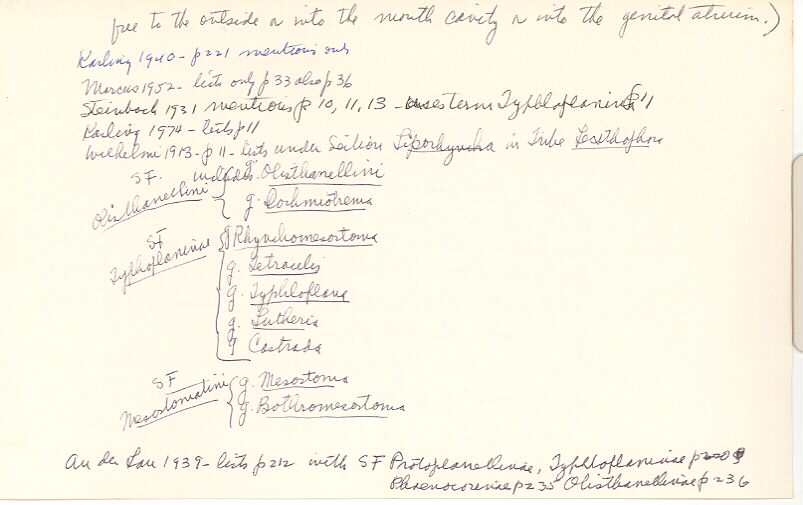 free to the outside or into the mouth cavity or into the genital atrium.)
Karling 1940 - p221 mentions only
Marcus 1952 - lists only p33 also p36
Steinbock 1931 mentions p 10, 11, 13 - uses term Typhloplanini p11
Karling 1974 - lists p11
Wilhelmi 1913 - p 11 - lists under Section Liporhyncha in Tribe Lecithophora
SF. Olisthanellini includes { g. Olisthanellini
g. Dochmiotrema
SF Typhloplaninae { g Rhynchomesostoma
g. Tetracelis
g. Typhloplana
g. Lutheria
g Castrada
SF Mesostomatini { g. Mesostoma
g. Bothromesostoma
An der Lan 1939 - lists p212 with SF Protoplanellinae, Typhloplaninae
Phaenocorinae p235 Olisthanellinae p236